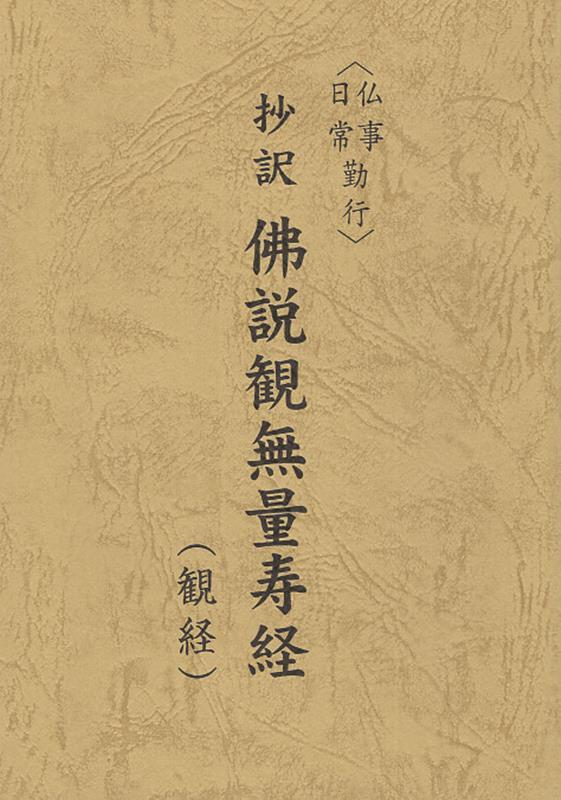 〈仏事
日常勤行〉
抄訳 佛説観無量寿経
（観経）